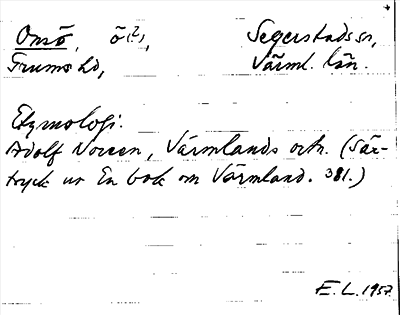 Onsö, ö(?), Segerstads sn,
Grums hd, Värml. län.
Etymologi.
Adolf Noreen, Värmlands ortn. (Sär-
tryck ur En bok om Värmland. 381.)
E. L. 1957.